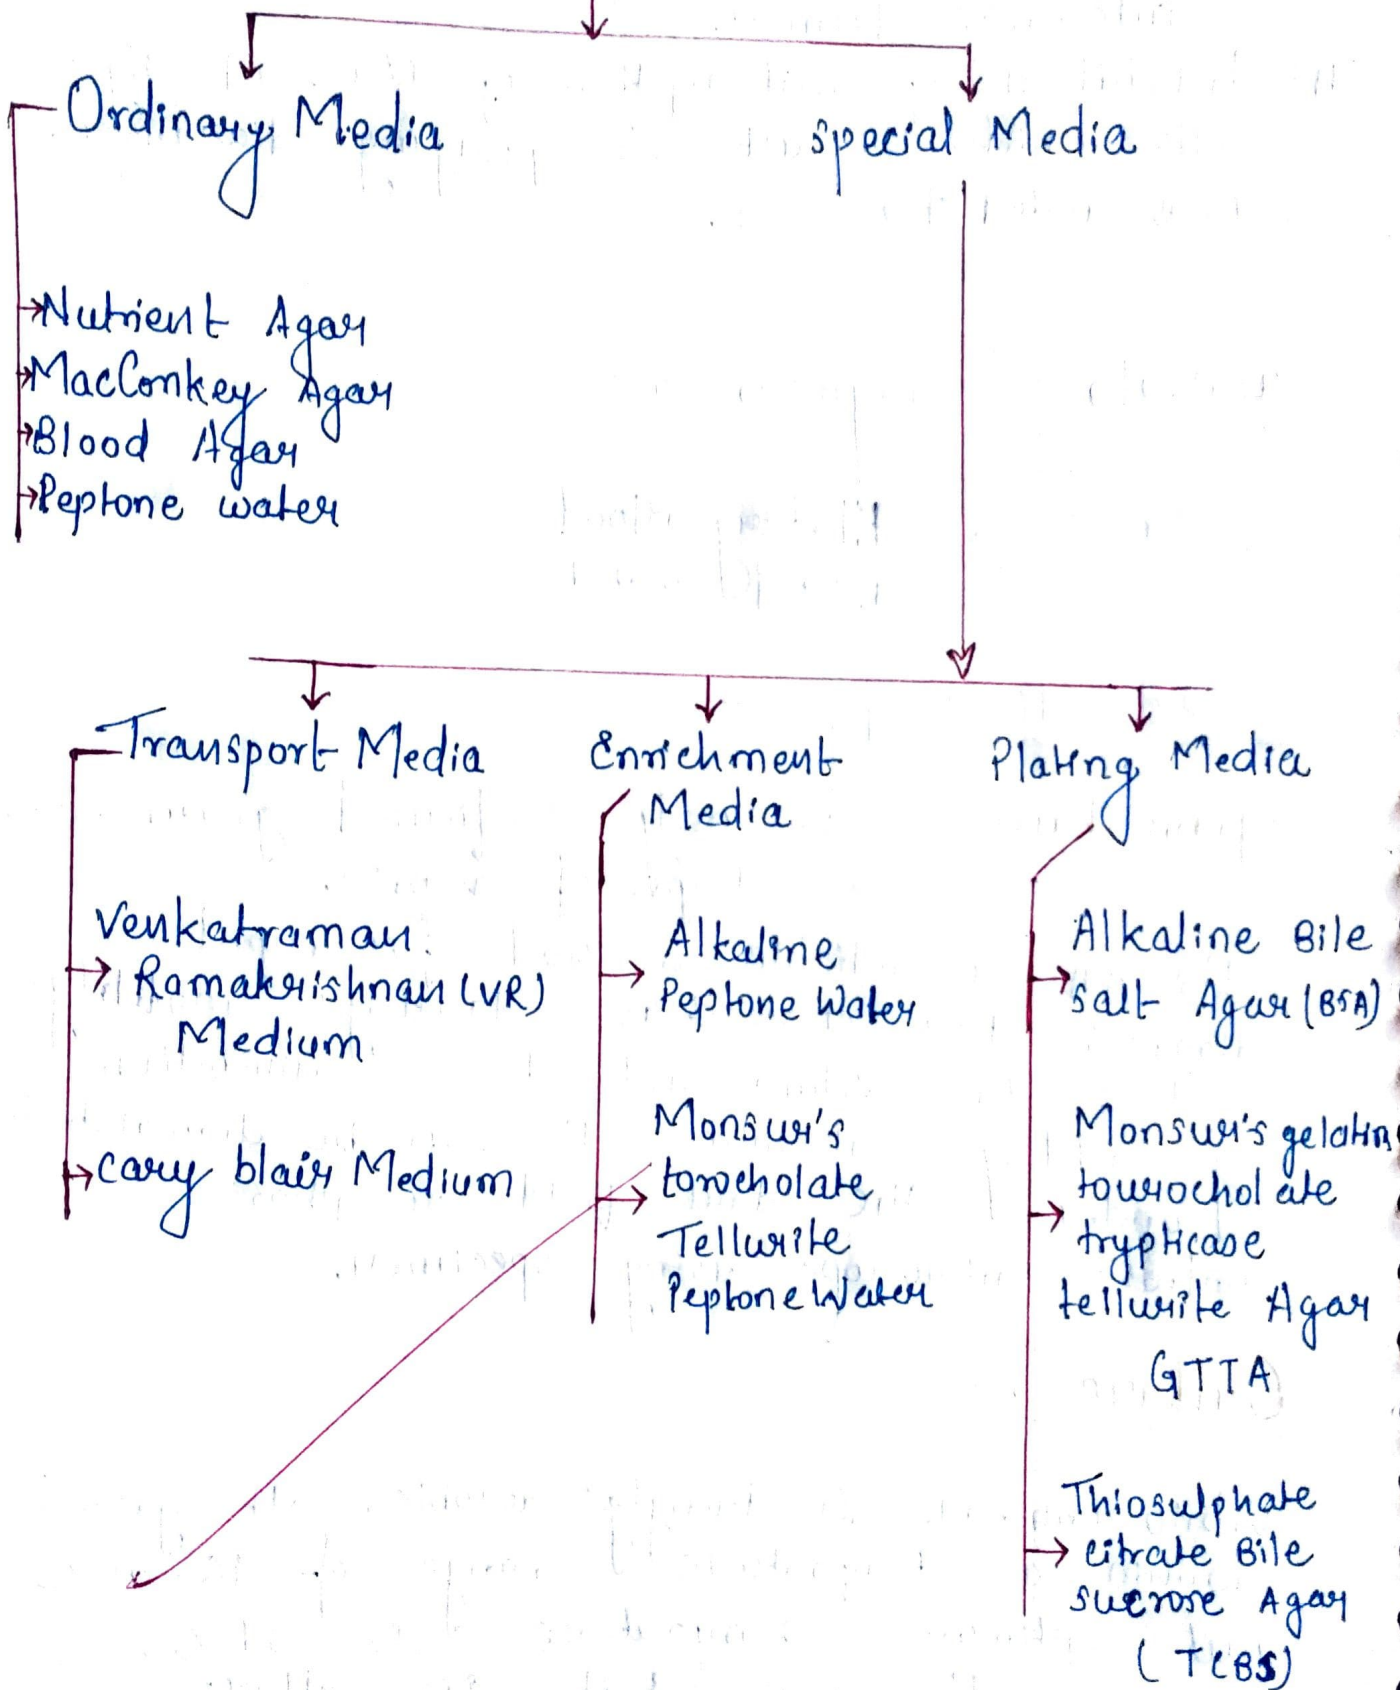 Ordinary Media
special Media
Nutrient Agar
MacConkey Agar
Blood Agar
Peptone water
Transport Media
Enrichment
Media
Plating Media
Venkatraman
Ramakrishnan (VR)
Medium
cary blair Medium
Alkaline
Peptone Water
Monsur's
torocholate
Tellurite
Peptone Water
Alkaline Bile
salt Agar (BSA)
Monsur's gelatin
tourocholate
trypticase
tellurite Agar
GTTA
Thiosulphate
citrate Bile
sucrose Agar
(TCBS)